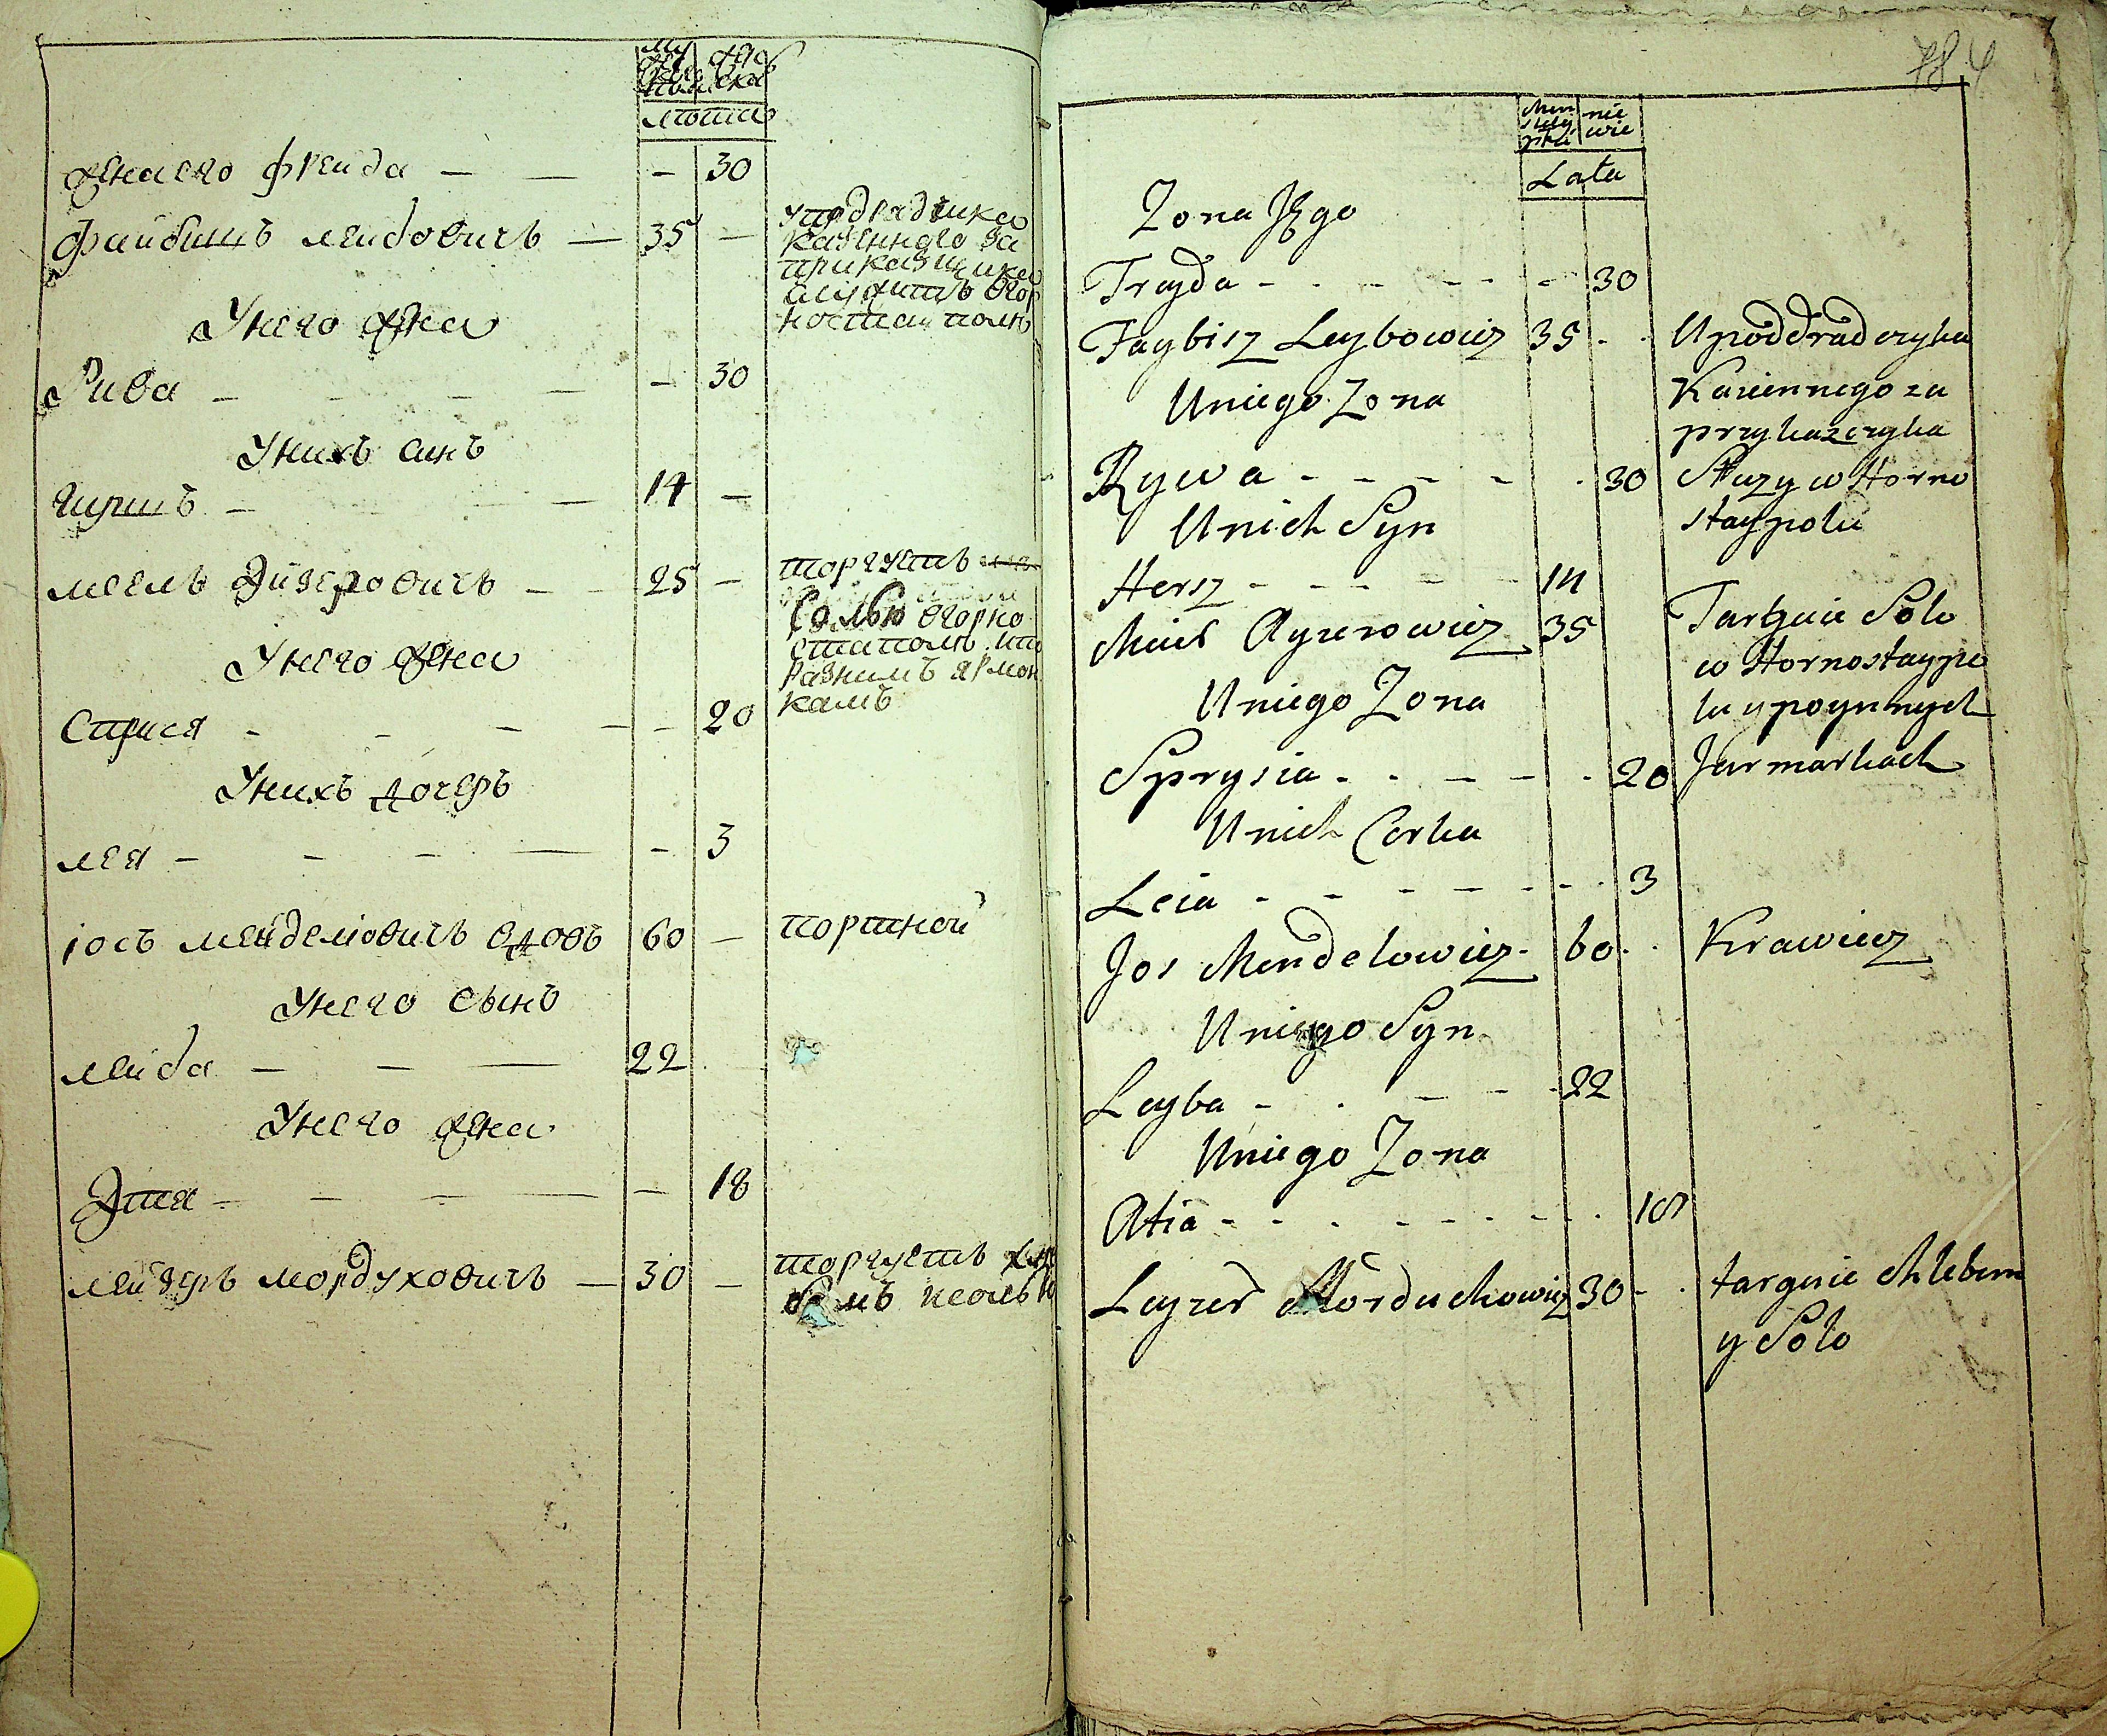 му
жес
ка
пола
жен
ска
лѣта
жена его фрейда — — — 30
файбишъ лейбовичъ — 35 —
у подрадчика
казенного за
прикащика
служитъ вгор
ностаиполѣ
У него жена
Рива — — — — — 30
У нихъ синъ
гиршъ — — — 14 —
меелъ Эйзеровичъ — 25 —
торгуетъ
Солью вгорно
стаиполѣ ипо
Разнимъ ярмон
камъ
У него жена
Сприся — — — — — 20
У нихъ дочерь
лея — — — — — 3
іось менделіовичъ вдовъ 60 —
портной
У него сынъ
леиба — — — 22
У него жена
Этея — — — — — 18
лейзеръ мордуховичъ — 30 —
торгуетъ хле
бомъ исолью
784
Men
skiey
płci
nie
wie
Lata
Zona Jego
Frayda - - - - - - 30
Faybisz Leybowicz 35 - -
U poddradczyka
Kaziennego za
przykazczyka
Służy w Horno
staypolu
Uniego Zona
Rywa - - - - - 30
Unich Syn
Hersz - - - - - 14
Meiel Ayzerowicz 35
Targuie Solo
w Hornostaypo
lu y poynnych
Jarmarkach
Uniego Zona
Sprysia - - - - - 20
Unich Corka
Leia - - - - - - - 3
Jos Mendelowicz - 60 - -
Krawiecz
Uniego Syn
Leyba - - - - - 22
Uniego Zona
Atia - - - - - - - - 18
Leyzer Morduchowicz 30 - -
targuie chlebem
y Solo